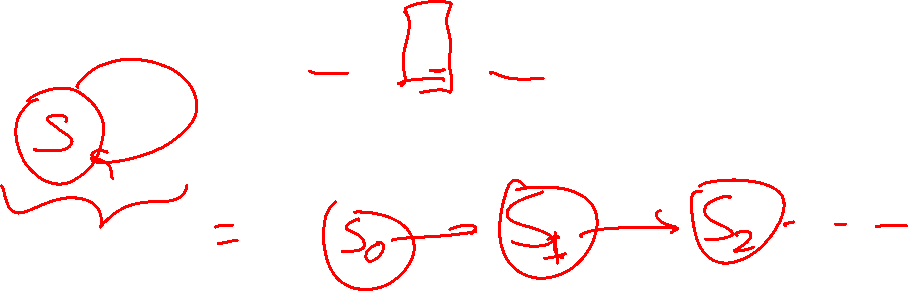 S
= S₀ → S₁ → S₂ ...